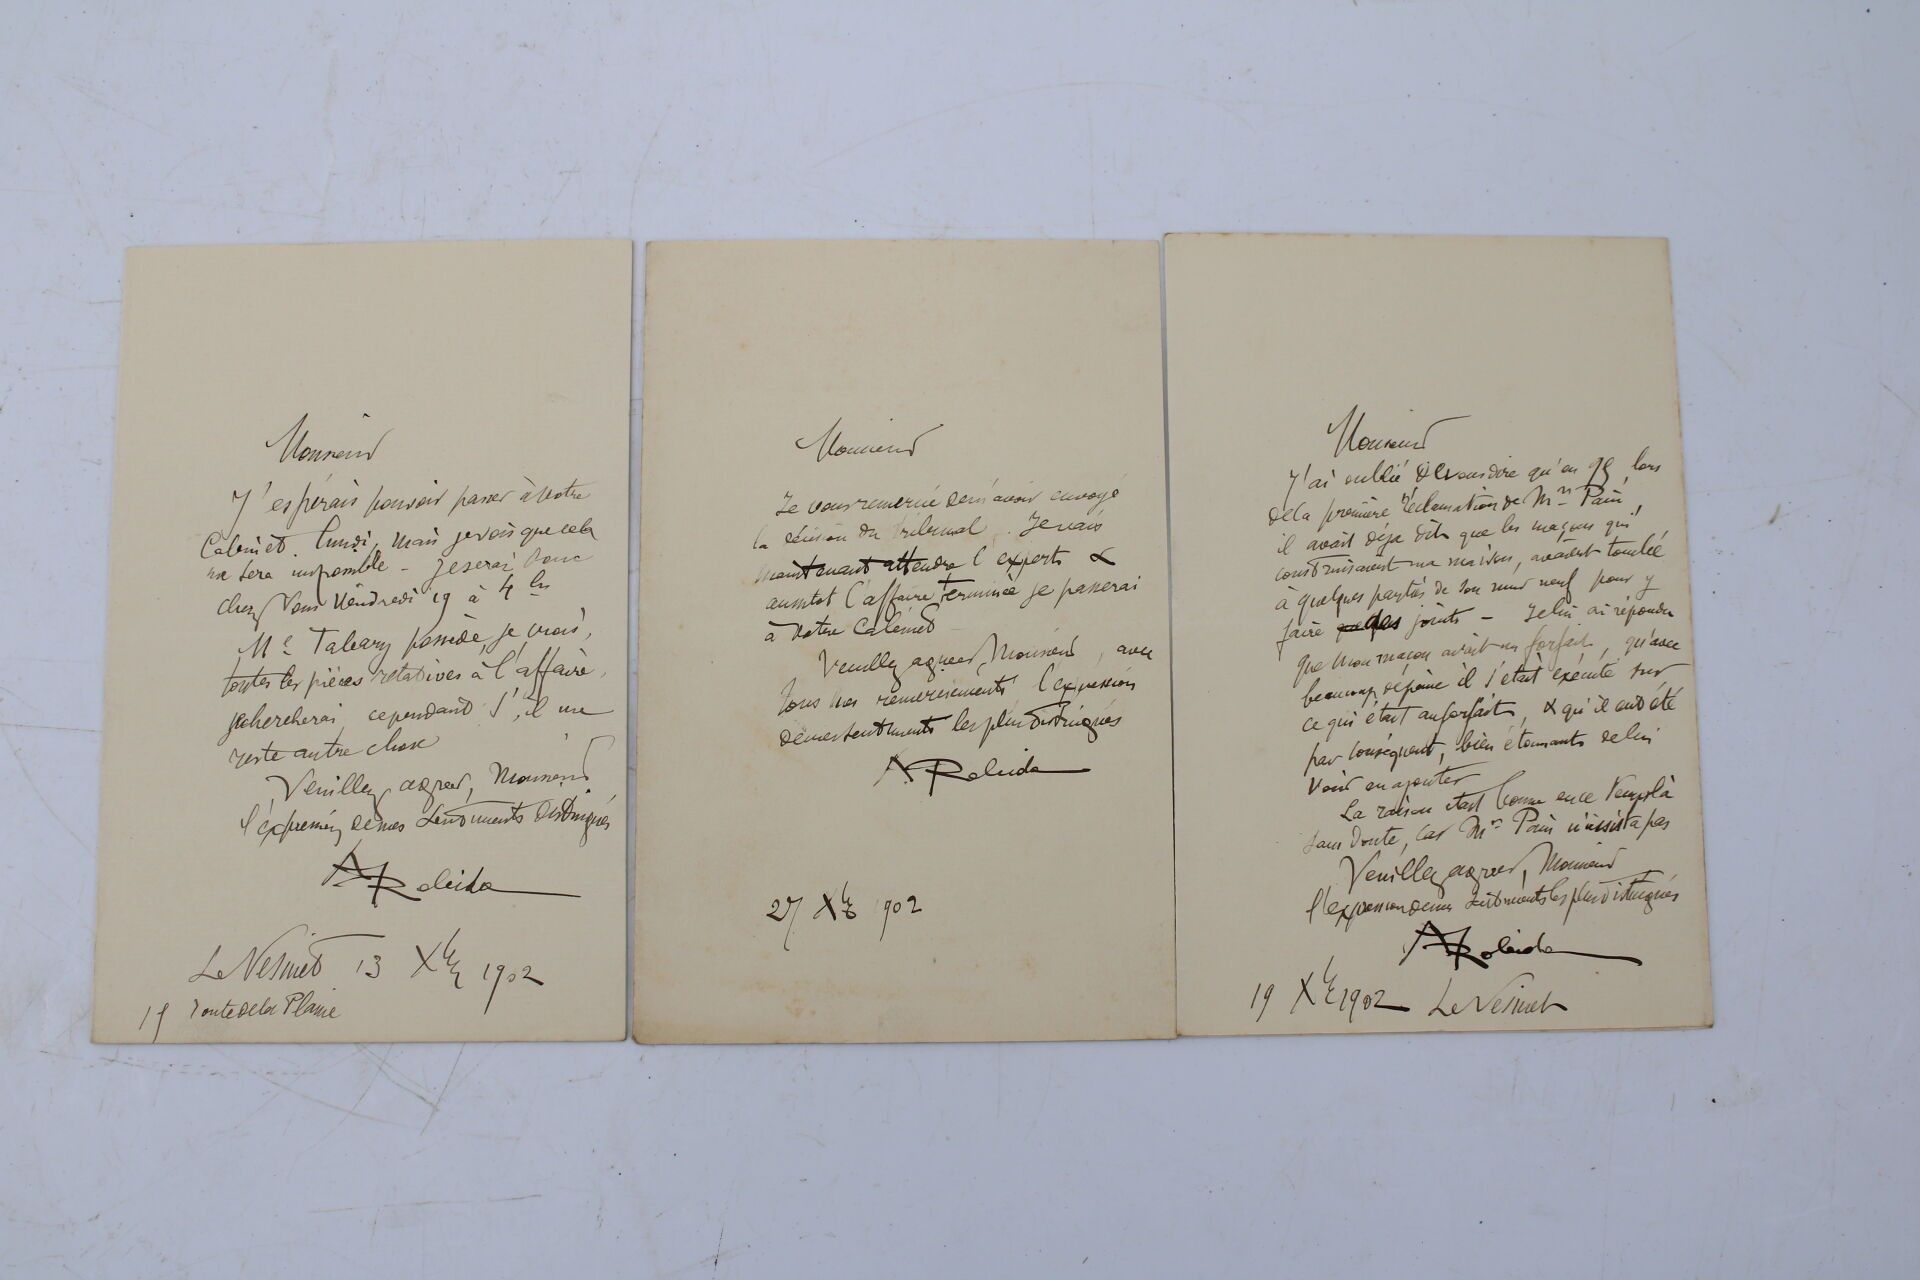 Monsieur
J'espérais pouvoir passer à votre
Cabinet. Lundi, mais je vois que cela
me sera impossible - Je serai donc
chez vous Vendredi 19 à 4 hrs
Me Tabary possède, je crois,
toutes les pièces relatives à l'affaire,
je chercherai cependant s'il me
reste autre chose
Veuillez agréer, Monsieur
l'expression de mes sentiments distingués
A Robida
Le Vésinet 13 Xbre 1902
15 route de la Plaine
Monsieur
Je vous remercie de m'avoir envoyé
la décision du tribunal. Je vais
maintenant attendre l'experts &
aussitot l'affaire terminée je passerai
à votre Cabinet
Veuillez agréer, Monsieur, avec
tous mes remerciements l'expression
de mes sentiments les plus distingués
A. Robida
27 Xbre 1902
Monsieur
J'ai oublié de vous dire qu'en 98 lors
de la première réclamation de Mr Pain
il avait déja dit que les maçons qui
construisaient ma maison, avaient touché
à quelques parties de son mur neuf pour y
faire des joints - Je lui ai répondu
que mon maçon avait un forfait, qu'avec
beaucoup de peine il s'était exécuté sur
ce qui était au forfait, & qu'il eut été
par conséquent, bien étonnant de lui
voir en ajouter
La raison était bonne en ce temps là
sans doute, car Mr Pain n'insista pas
Veuillez agréer, Monsieur
l'expression de mes sentiments les plus distingués
A Robida
19 Xbre 1902 Le Vésinet